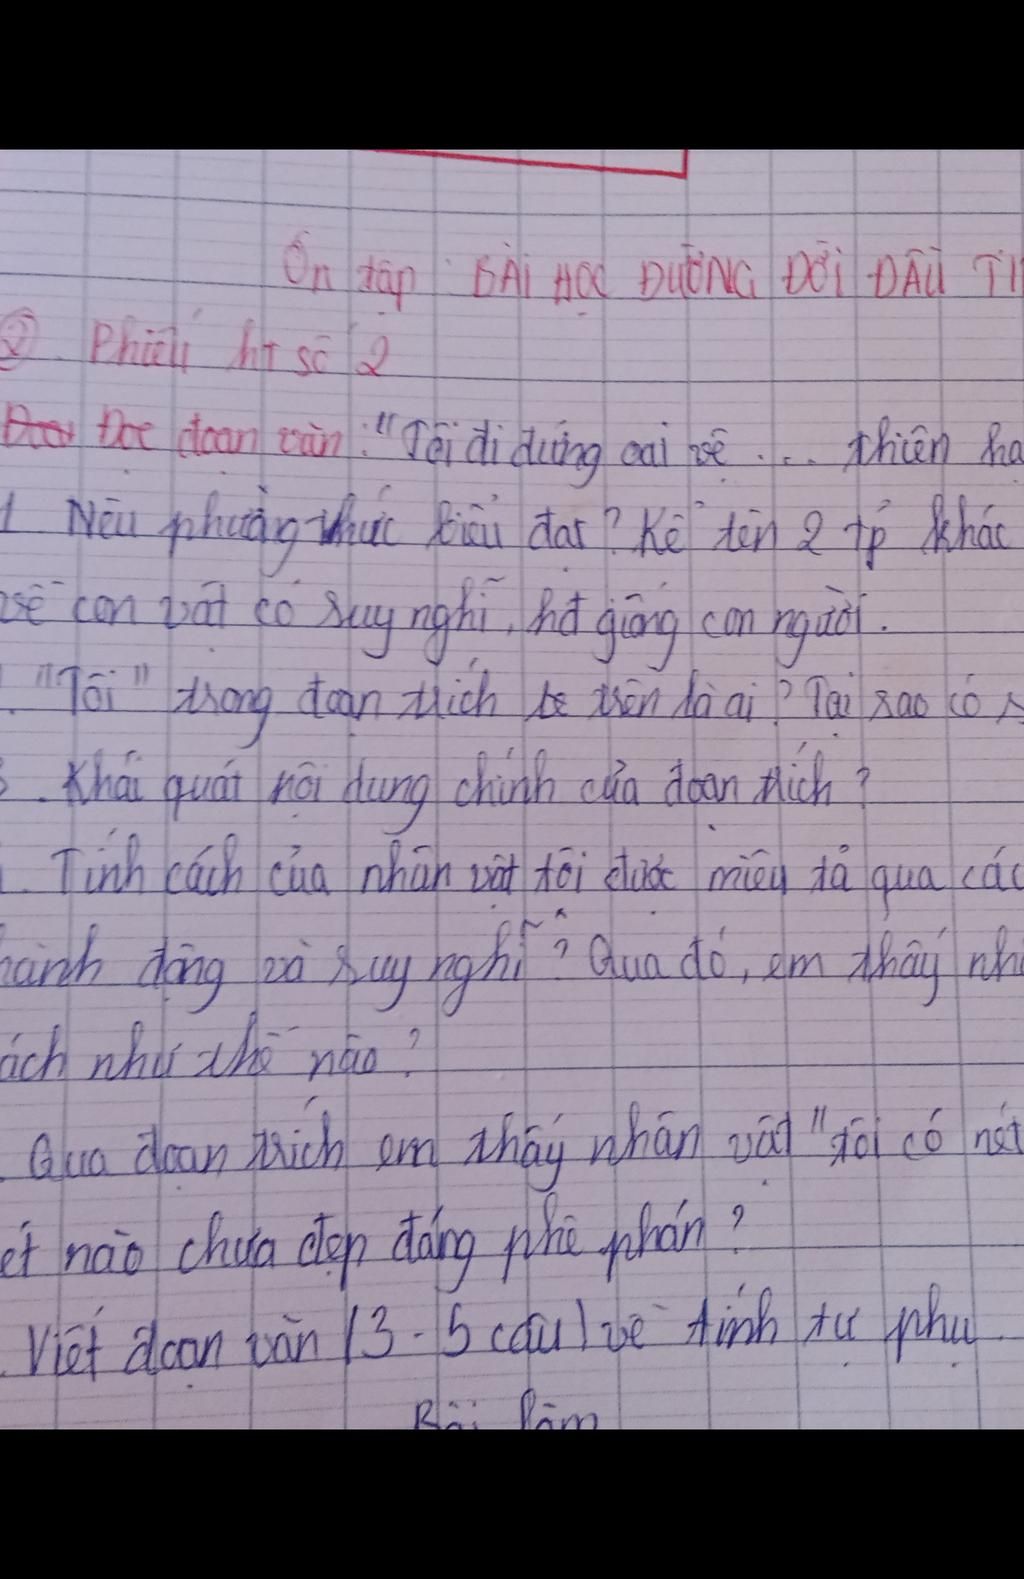 Ôn tập: BÀI HỌC ĐƯỜNG ĐỜI ĐẦU
② Phiếu ht số 2
Đọc đoạn văn: "Tôi đi đứng oai vệ ... thiên hạ
1 Nêu phương thức biểu đạt? Kể tên 2 tp khác
về con vật có suy nghĩ, hđ giống con người.
. "Tôi" trong đoạn trích trên là ai? Tại sao có
3. Khái quát nội dung chính của đoạn trích?
. Tính cách của nhân vật tôi được miêu tả qua các
hành động và suy nghĩ? Qua đó, em thấy
cách như thế nào?
. Qua đoạn trích em thấy nhân vật "tôi có nét
ét nào chưa đẹp đáng phê phán?
. Viết đoạn văn (3-5 câu) về tính tự phụ
Bài làm